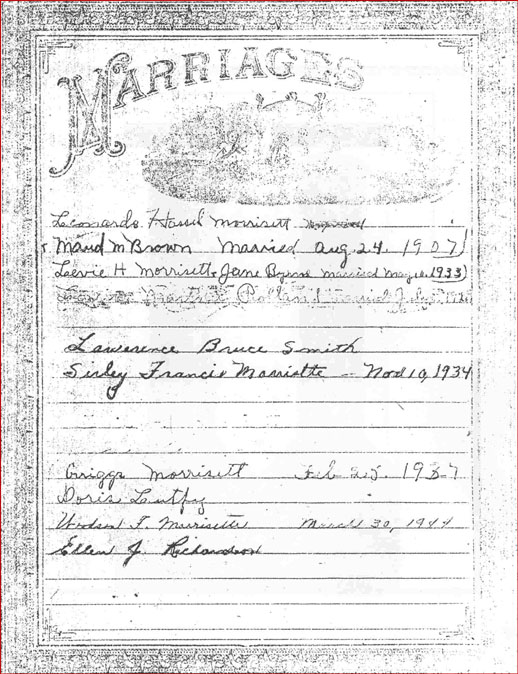 MARRIAGES
Leonardo Morrisett
Maud M Brown Married Aug. 24. 1907)
Leevie H Morrisett & Jane married May 10. 1933)
Lawerence Bruce Smith
Sirley Francis Morriotte - Nov 10, 1934
Griggs Morrisett Feb 25. 1937
Doris
Woodson T. Morrisette March 30, 1944
Ellen J. Richardson